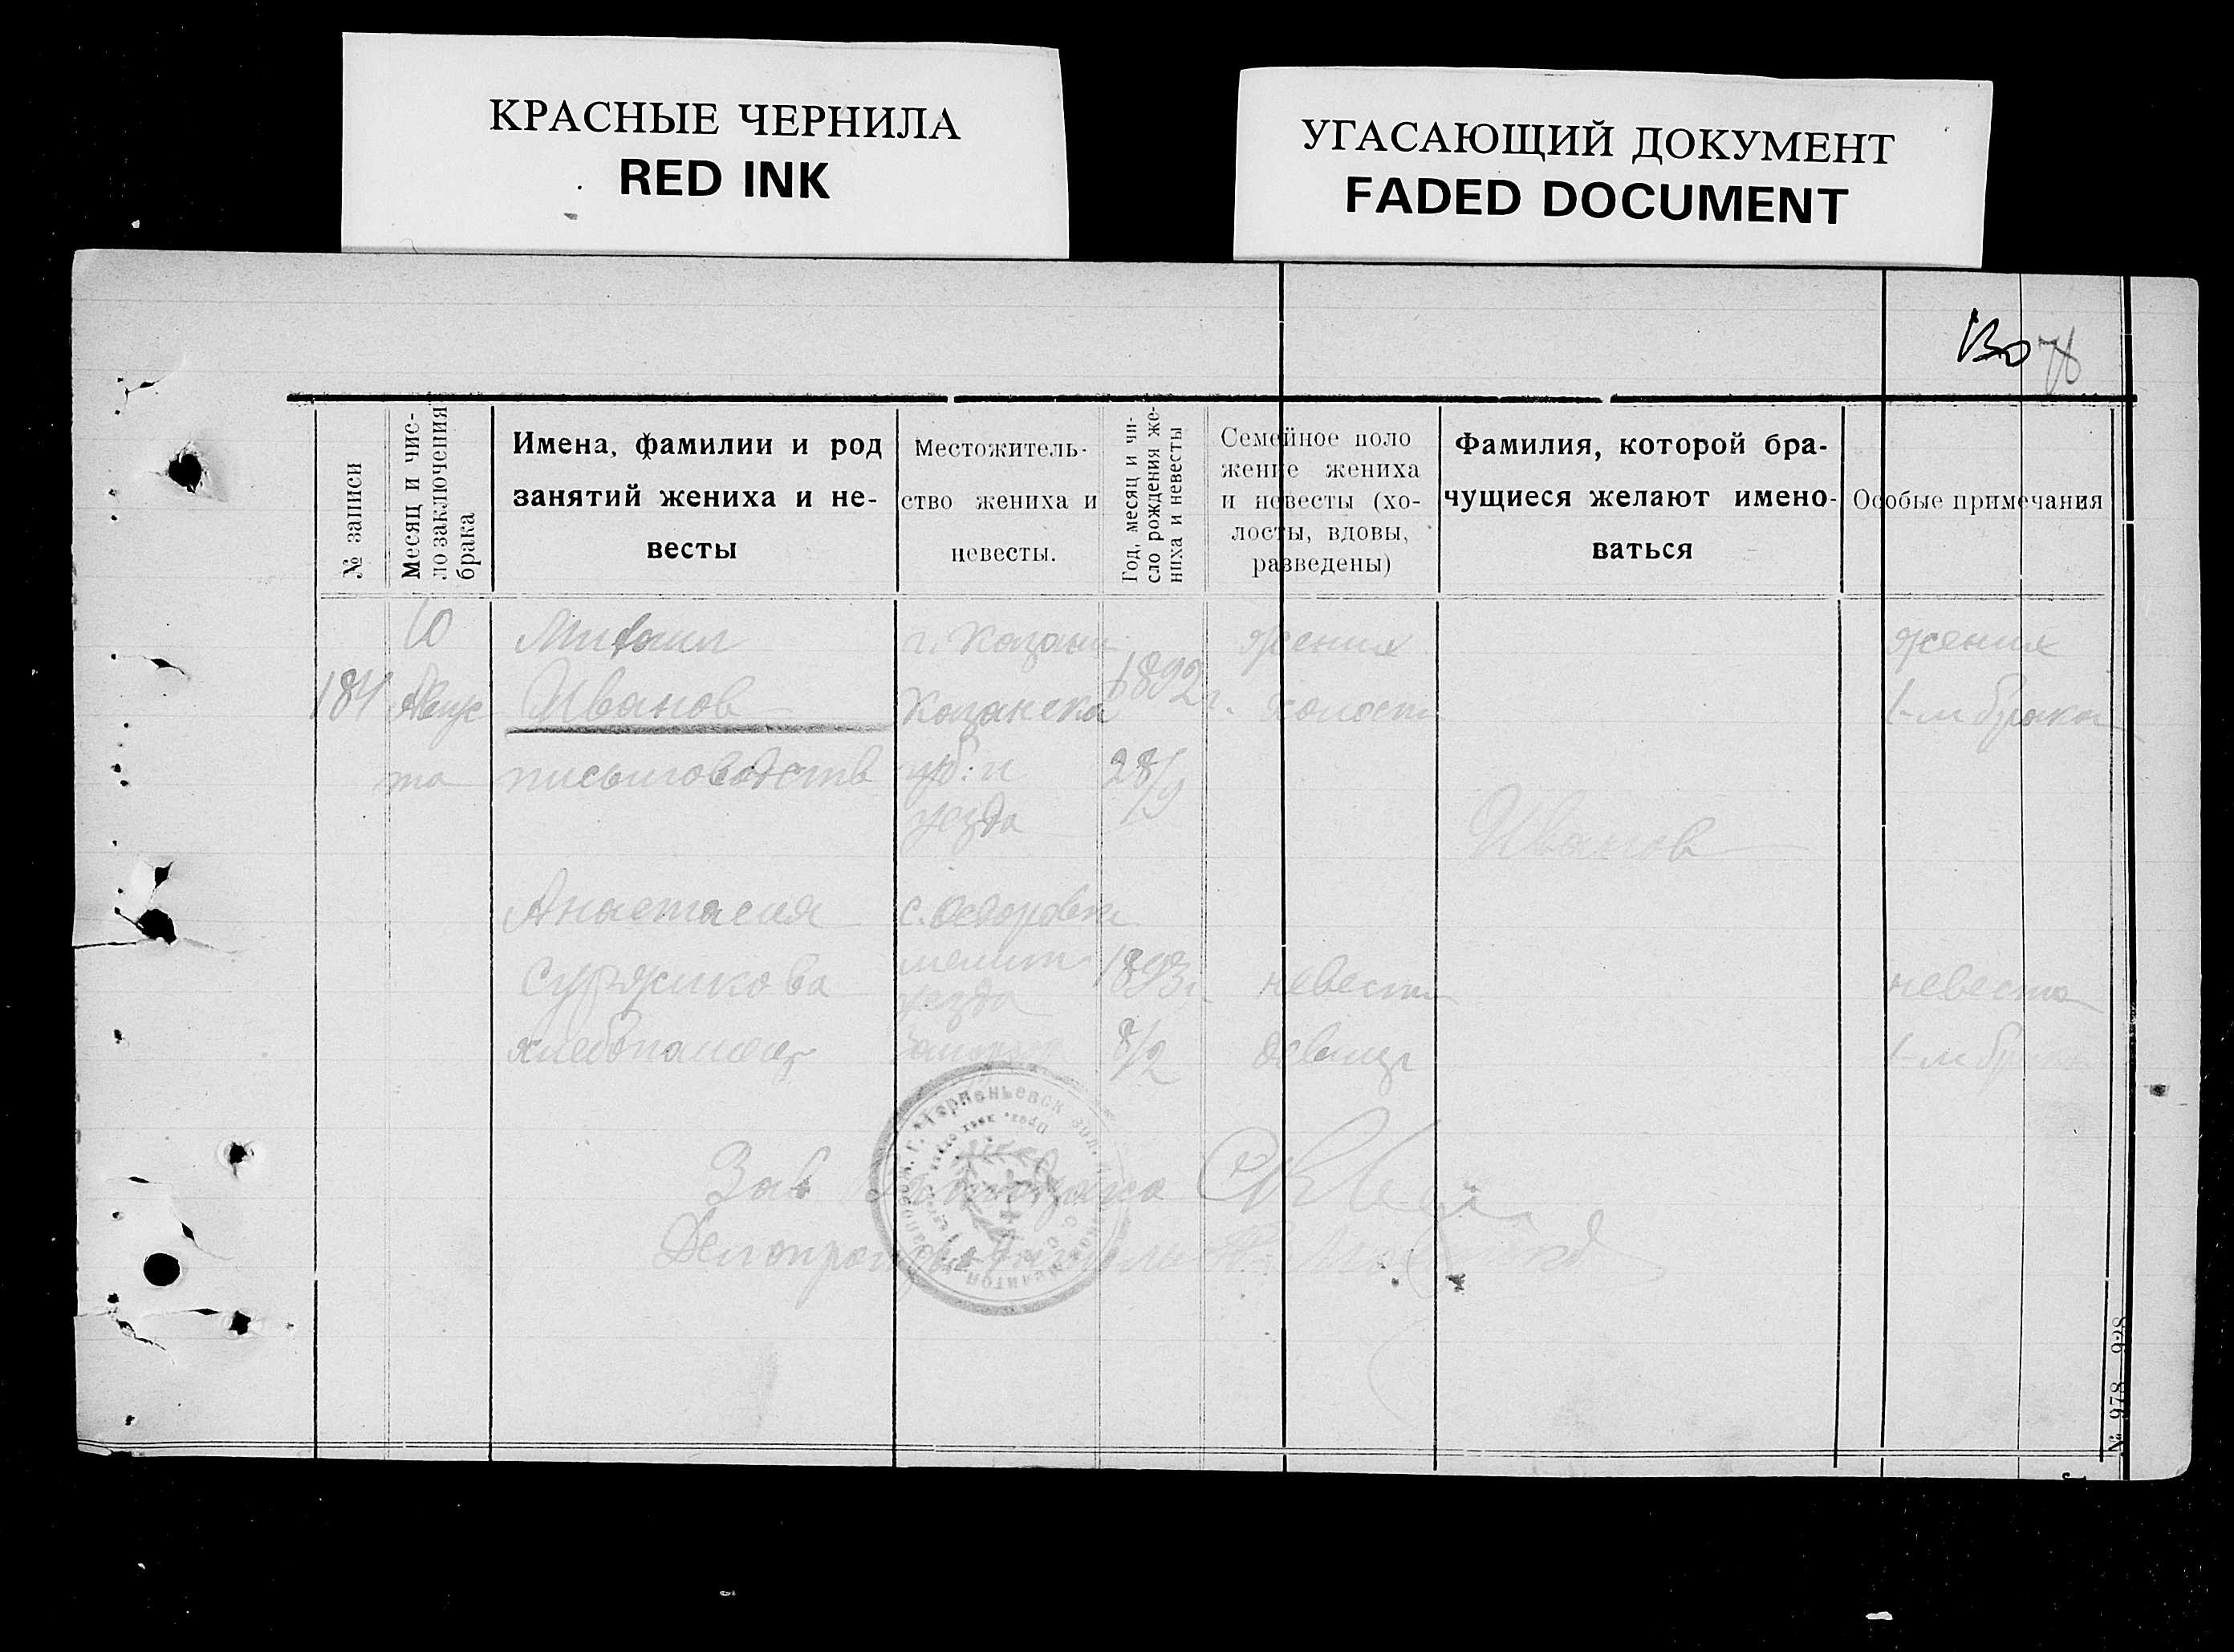 КРАСНЫЕ ЧЕРНИЛА
RED INK
УГАСАЮЩИЙ ДОКУМЕНТ
FADED DOCUMENT
130 78
№ записи
Месяц и чис-
ло заключения
брака
Имена, фамилии и род
занятий жениха и не-
весты
Местожитель-
ство жениха и
невесты.
Год, месяц и чи-
сло рождения же-
ниха и невесты
Семейное поло
жение жениха
и невесты (хо-
лосты, вдовы,
разведены)
Фамилия, которой бра-
чущиеся желают имено-
ваться
Особые примечания
181
10
Авгус
та
Михаил
Иванов
письмоводств
г. Казани
Казанска
губ: и
уезда
1892 г.
28/9
жених
холост
Иванов
жених
1-м браком
Анастасия
Суржикова
хлебопашец
с. Федоровка
мелит
уезда
1893 г.
8/2
невеста
девица
невеста
1-м браком
Зав
Делопроизв
№ 978 928